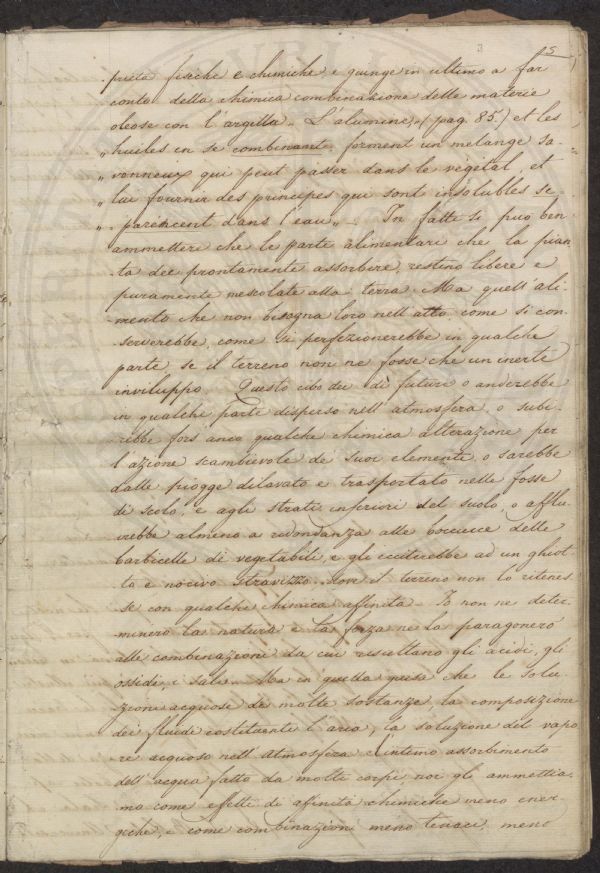 5
prietà fisiche e chimiche e giunge in ultimo a far
conto della chimica combinazione delle materie
oleose con l'argilla. L'alumine, (pag. 85.) et les
„ huiles en se combinant forment un melange sa-
„ vonneux qui peut passer dans le végital, et
„ lui fournir des principes qui sont insolubles se-
„ parement dans l'eau „. In fatti si può ben
ammettere che le parti alimentari che la pian-
ta dee prontamente assorbire, restino libere e
puramente mescolate alla terra. Ma quell'ali-
mento che non bisogna loro nell'atto come si con-
serverebbe, come si perfezionerebbe in qualche
parte, se il terreno non ne fosse che un inerte
inviluppo. Questo cibo dei dì futuri o anderebbe
in qualche parte disperso nell'atmosfera, o subi-
rebbe fors'anco qualche chimica alterazione per
l'azione scambievole de' suoi elementi, o sarebbe
dalle piogge dilavato e trasportato nelle fosse
di scolo, e agli strati inferiori del suolo, o afflui-
rebbe almeno a ridondanza alle boccucce delle
barbicelle di vegetabili, e gli ecciterebbe ad un ghiot-
to e nocivo stravizzo ove il terreno non lo ritenes-
se con qualche chimica affinità. Io non ne deter-
minerò la natura e la forza ne la paragonerò
alle combinazioni da cui resultano gli acidi, gli
ossidi, i sali. Ma in quella guisa che le solu-
zioni acquose di molte sostanze, la composizione
dei fluidi costituenti l'aria, la soluzione del vapo-
re acquoso nell'atmosfera e intimo assorbimento
dell'acqua fatto da molti corpi noi gli ammettia-
mo come effetti di affinità chimiche meno ener-
giche, e come combinazioni meno tenaci, meno